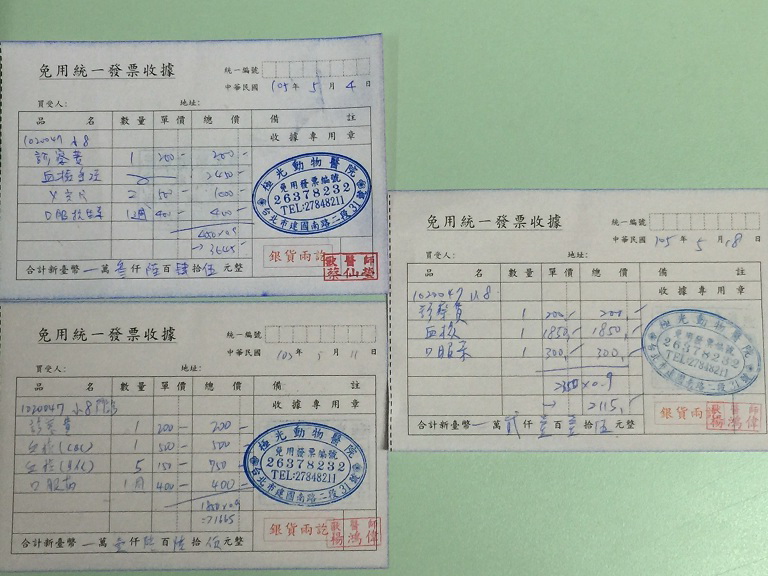 免用統一發票收據
統一編號
中華民國 105年 5月 4日
買受人： 地址：
品名 數量 單價 總價 備註
收據專用章
1020047 小8
診察費 1 200- 200-
2450-
X光片 2 500- 1000-
400- 400-
→3645-
極光動物醫院
免用發票編號
26378232
TEL:27848211
台北市建國南路二段31號
銀貨兩訖
獸醫師
蔡仙瑩
合計新台幣一萬叁仟陸百肆拾伍元整
免用統一發票收據
統一編號
中華民國 105年 5月 11日
買受人： 地址：
品名 數量 單價 總價 備註
收據專用章
1020047 小8
診察費 1 200- 200-
血檢(CBC) 1 500- 500-
5 150- 750-
1月 400- 400-
1850×0.9
→1665
極光動物醫院
免用發票編號
26378232
TEL:27848211
台北市建國南路二段31號
銀貨兩訖
獸醫師
楊鴻偉
合計新台幣一萬壹仟陸百陸拾伍元整
免用統一發票收據
統一編號
中華民國 105年 5月 18日
買受人： 地址：
品名 數量 單價 總價 備註
收據專用章
1020047 小8
診察費 1 200- 200-
血檢 1 1850- 1850-
口服藥 1 300- 300-
2350×0.9
→ 2115-
極光動物醫院
免用發票編號
26378232
TEL:27848211
台北市建國南路二段31號
銀貨兩訖
獸醫師
楊鴻偉
合計新台幣一萬貳仟壹百壹拾伍元整